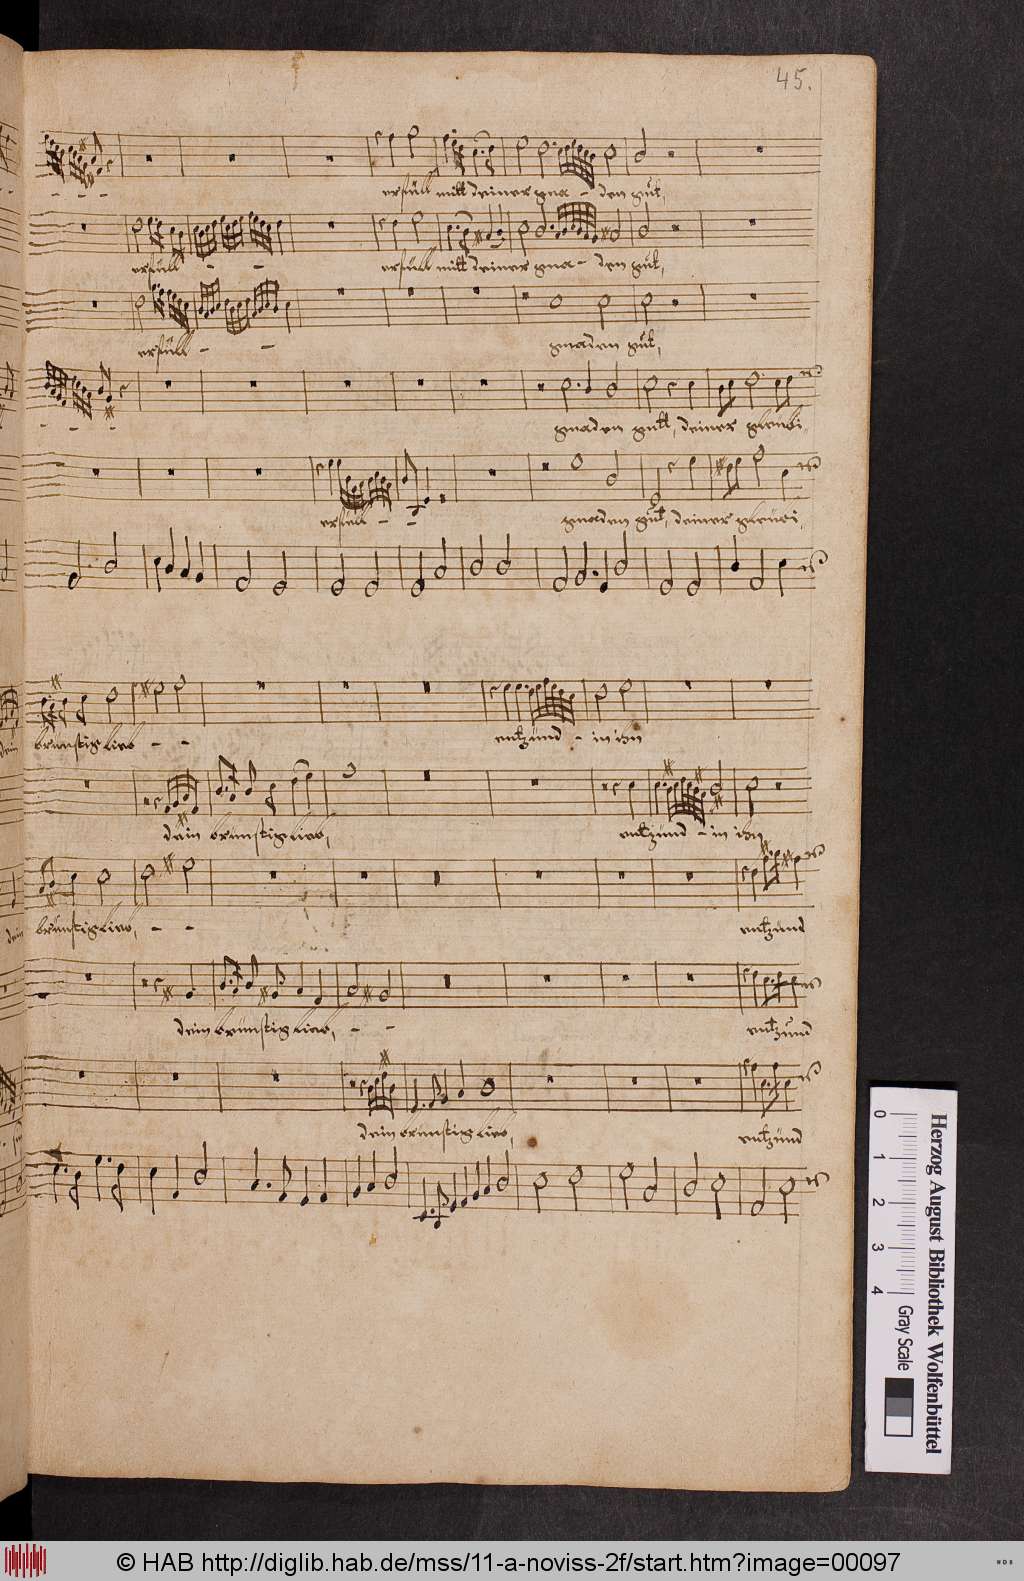 45.
erfüll mitt deiner gna - den gut,
erfüll - - erfüll mitt deiner gna - den gut,
erfüll - - gnaden gut,
gnaden gutt, deiner gleubi
erfüll - - gnaden gut, deiner gleubi,
brunstig lieb - - entzund - in ihn
dein brunstig lieb, entzund - in ihn
dein brünstig lieb, - - entzund
dein brünstig lieb, - - entzund
dein brunstig lieb, entzünd
Herzog August Bibliothek Wolfenbüttel
0 1 2 3 4 Gray Scale
© HAB http://diglib.hab.de/mss/11-a-noviss-2f/start.htm?image=00097